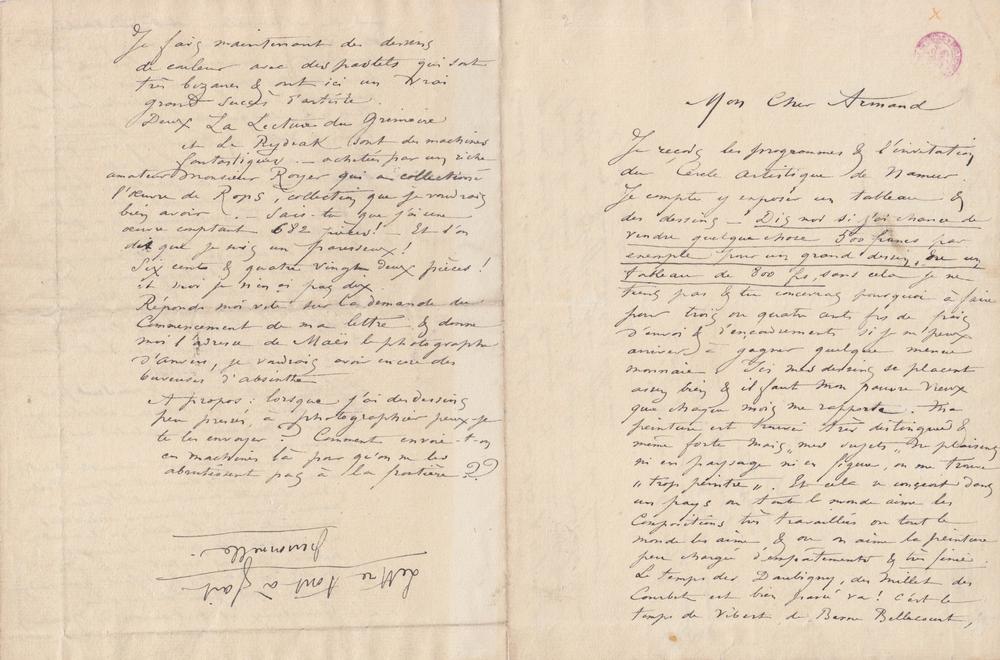 Mon Cher Armand
Je reçois les programmes & l'invitation
du Cercle artistique de Namur.
Je compte y exposer un tableau &
des dessins — Dis moi si j'ai chance de
vendre quelque chose 500 francs par
exemple pour un grand dessin, ou un
tableau de 800 fs, sans cela je ne
tiens pas & tu concevras pourquoi à faire
pour trois ou quatre cents frs de frais
d'envoi & d'encadrements si je n'peux
arriver à gagner quelque menue
monnaie. Ici mes dessins se placent
assez bien & il faut mon pauvre vieux
que chaque mois me rapporte. Ma
peinture est trouvée très distinguée &
même forte mais „mes sujets„ ne plaisent
ni en paysage ni en figure, on me trouve
„trop peintre„. Et cela se conçoit dans
un pays où tout le monde aime les
Compositions très travaillées où tout le
monde les aime & où on aime la peinture
peu chargée d'empâtements & très finie.
Le temps des Daubigny, des Millet des
Courbet est bien passé va! c'est le
temps de Vibert, de Berne Bellecourt,
Je fais maintenant des dessins
de couleur avec des pastels qui sont
très bizarres & ont ici un vrai
grand succès d'artiste.
Deux La Lecture du Grimoire
et Le Rydiak sont des machines
fantastiques. — achetées par un riche
amateur Monsieur Royer qui a collectionné
l'œuvre de Rops, collection que je voudrais
bien avoir. — Sais-tu que j'ai une
œuvre comptant 682 pièces! — Et l'on
dit que je suis un paresseux!
Six cents & quatre vingt deux pièces!
et moi je n'en ai pas deux.
Réponds moi vite sur la demande du
Commencement de ma lettre & donne
moi l'adresse de Maës le photographe
d'Anvers, je voudrais avoir encore des
buveuses d'absinthe
A propos: lorsque j'ai des dessins
peu pressés, à photographier peux-je
te les envoyer? Comment envoie-t-on
ces machines là pour qu'on ne les
abrutissent pas à la frontière??
Lettre tout à fait
personnelle.